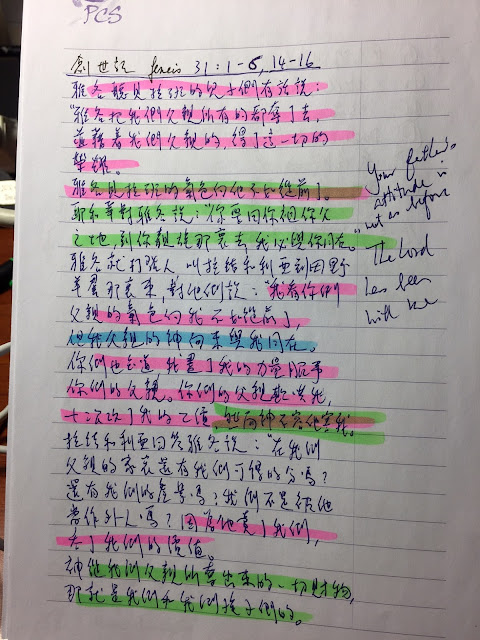 PCS
創世記 Geneis 31:1-6, 14-16
雅各聽見拉班的兒子們有話說:
"雅各把我們父親所有的都奪了去,
並藉着我們父親的,得了這一切的
榮耀。
雅各見拉班的氣色向他不如從前了。
耶和華對雅各說:"你要回你祖你父
之地,到你親族那裏去,我必與你同在。"
雅各就打發人叫拉結和利亞到田野
羊羣那裏來,對他們說:"我看你們
父親的氣色向我不如從前了,
但我父親的神向來與我同在。
你們也知道我盡了我的力量服事
你們的父親。你們的父親欺哄我,
十次改了我的工價,然而神不容他害我。
拉結和利亞回答雅各說:"在我們
父親的家裏還有我們可得的分嗎?
還有我們的產業嗎?我們不是被他
當作外人嗎?因為他賣了我們,
吞了我們的價值。
神從我們父親所奪出來的一切財物,
那就是我們和我們孩子們的。
Your father's
attitude is
not as before
The Lord
has been
with me